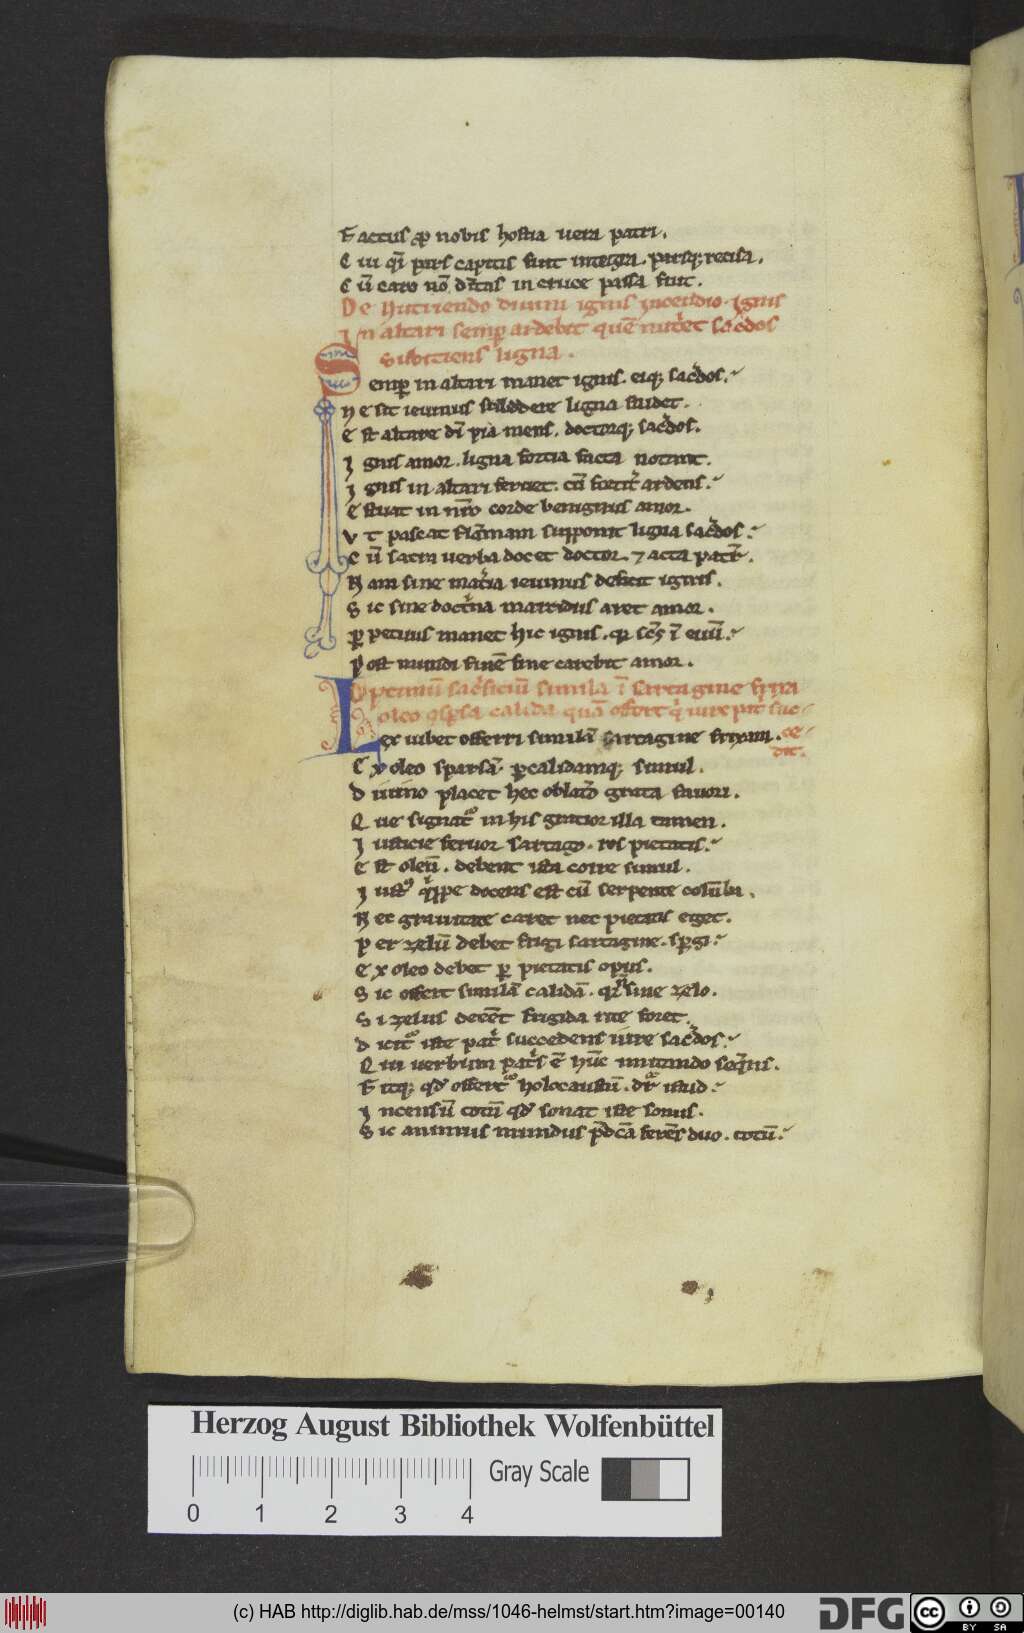 Factus ꝓ nobis hostia uera patri.
Cui qͥ pars capitis sunt integra. parsq; recisa.
Cū caro nō dītas in cruce passa fuit.
De nutriendo diuini ignis incendio. Ignis
in altari semꝑ ardebit quē nutͥet sac̓dos
subiciens ligna.
Semꝑ in altari manet ignis. eiq; sac̓dos.
Ne sit ieiunus subdere ligna studet.
Est altare dī pia mens. doctorq; sac̓dos.
Ignis amor. ligna fortia facta notant.
Ignis in altari feruet. cū ardens.
Estuat in nr̄o corde benignus amor.
Vt pascat flāmam supponit ligna sac̓dos.
Cū sacra uerba docet doctor ⁊ acta patr̄.
Nam sine mat̓ia ieiunus deficit ignis.
Sic sine doctͥna marcidus aret amor.
ꝑpetuus manet hic ignis. qꝛ ī euū.
Post mundi finē fine carebit amor.
sac̓ficiū simila ī sartagine frixa
oleo ꝯsꝑsa calida quā offert qͥ iure patͥ suc-
Lex iubet offerri similā sartagine frixam. ce-
dit.
Ex oleo sparsā. ꝑcalidamq; simul.
Diuino placet hec oblatō grata fauori.
Que signatᷣ in his gratior illa tamen.
Iusticie feruor sartago. ros pietatis.
Est oleū. debent ista coire simul.
Iustꝰ qͥppe docens est cū serpente colūba.
Nec grauitate caret nec pietatis eget.
Per zelū debet frigi sartagine. spͣgi.
Ex oleo debet ꝑ pietatis opus.
Sic offert similā calidā. qꝛ n̄ sine zelo.
Si zelus deēet frigida rite foret.
Dicitᷣ iste patͥ succedens iure sac̓dos.
Qui uerbum patͥs ē hūc imitando seqͣns.
Fitq; qd̄ offertᷣ holocaustū. dr̄ istud.
Incensū totū qd̄ sonat iste sonus.
Sic animus mundus p̄dcā ferēs duo. totū.
Herzog August Bibliothek Wolfenbüttel
0 1 2 3 4
Gray Scale
(c) HAB http://diglib.hab.de/mss/1046-helmst/start.htm?image=00140
DFG
cc
BY SA